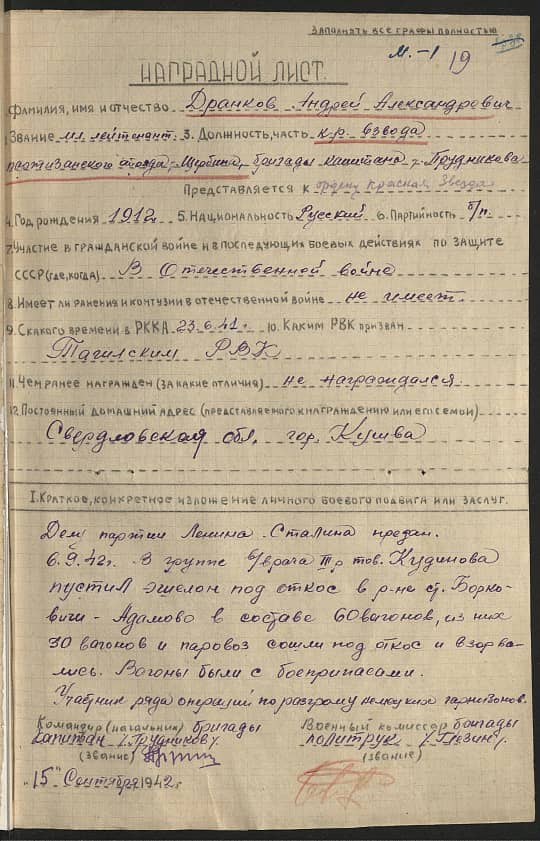 Заполнять все графы полностью
М.-1 19
НАГРАДНОЙ ЛИСТ.
Фамилия, имя и отчество Дранков Андрей Александрович
Звание мл. лейтенант. 3. Должность, часть к-р. взвода
партизанского отряда бригады капитана -Прудникова-
Представляется к ордену Красная Звезда
4. Год рождения 1912 5. Национальность Русский 6. Партийность б/п.
7. Участие в гражданской войне и в последующих боевых действиях по защите
СССР (где, когда) В Отечественной войне
8. Имеет ли ранения и контузии в отечественной войне не имеет.
9. С какого времени в РККА 23.6.41г. 10. Каким РВК призван
Тагилским РВК
11. Чем ранее награжден (за какие отличия) не награждался
12. Постоянный домашний адрес (представляемого к награждению или его семьи)
Свердловская обл. гор. Кушва
I. Краткое, конкретное изложение личного боевого подвига или заслуг.
Делу партии Ленина-Сталина предан.
6.9.42г. В группе в/врача IIIр тов. Кудинова
пустил эшелон под откос в р-не ст. Борко-
вичи - Адамово в составе 60 вагонов, из них
30 вагонов и паровоз сошли под откос и взорва-
лись. Вагоны были с боеприпасами.
Участник ряда операций по разгрому немецких гарнизонов.
Командир (начальник) бригады Военный комиссар бригады
капитан /Прудников/ политрук
(звание) (звание)
"15" Сентября 1942г.